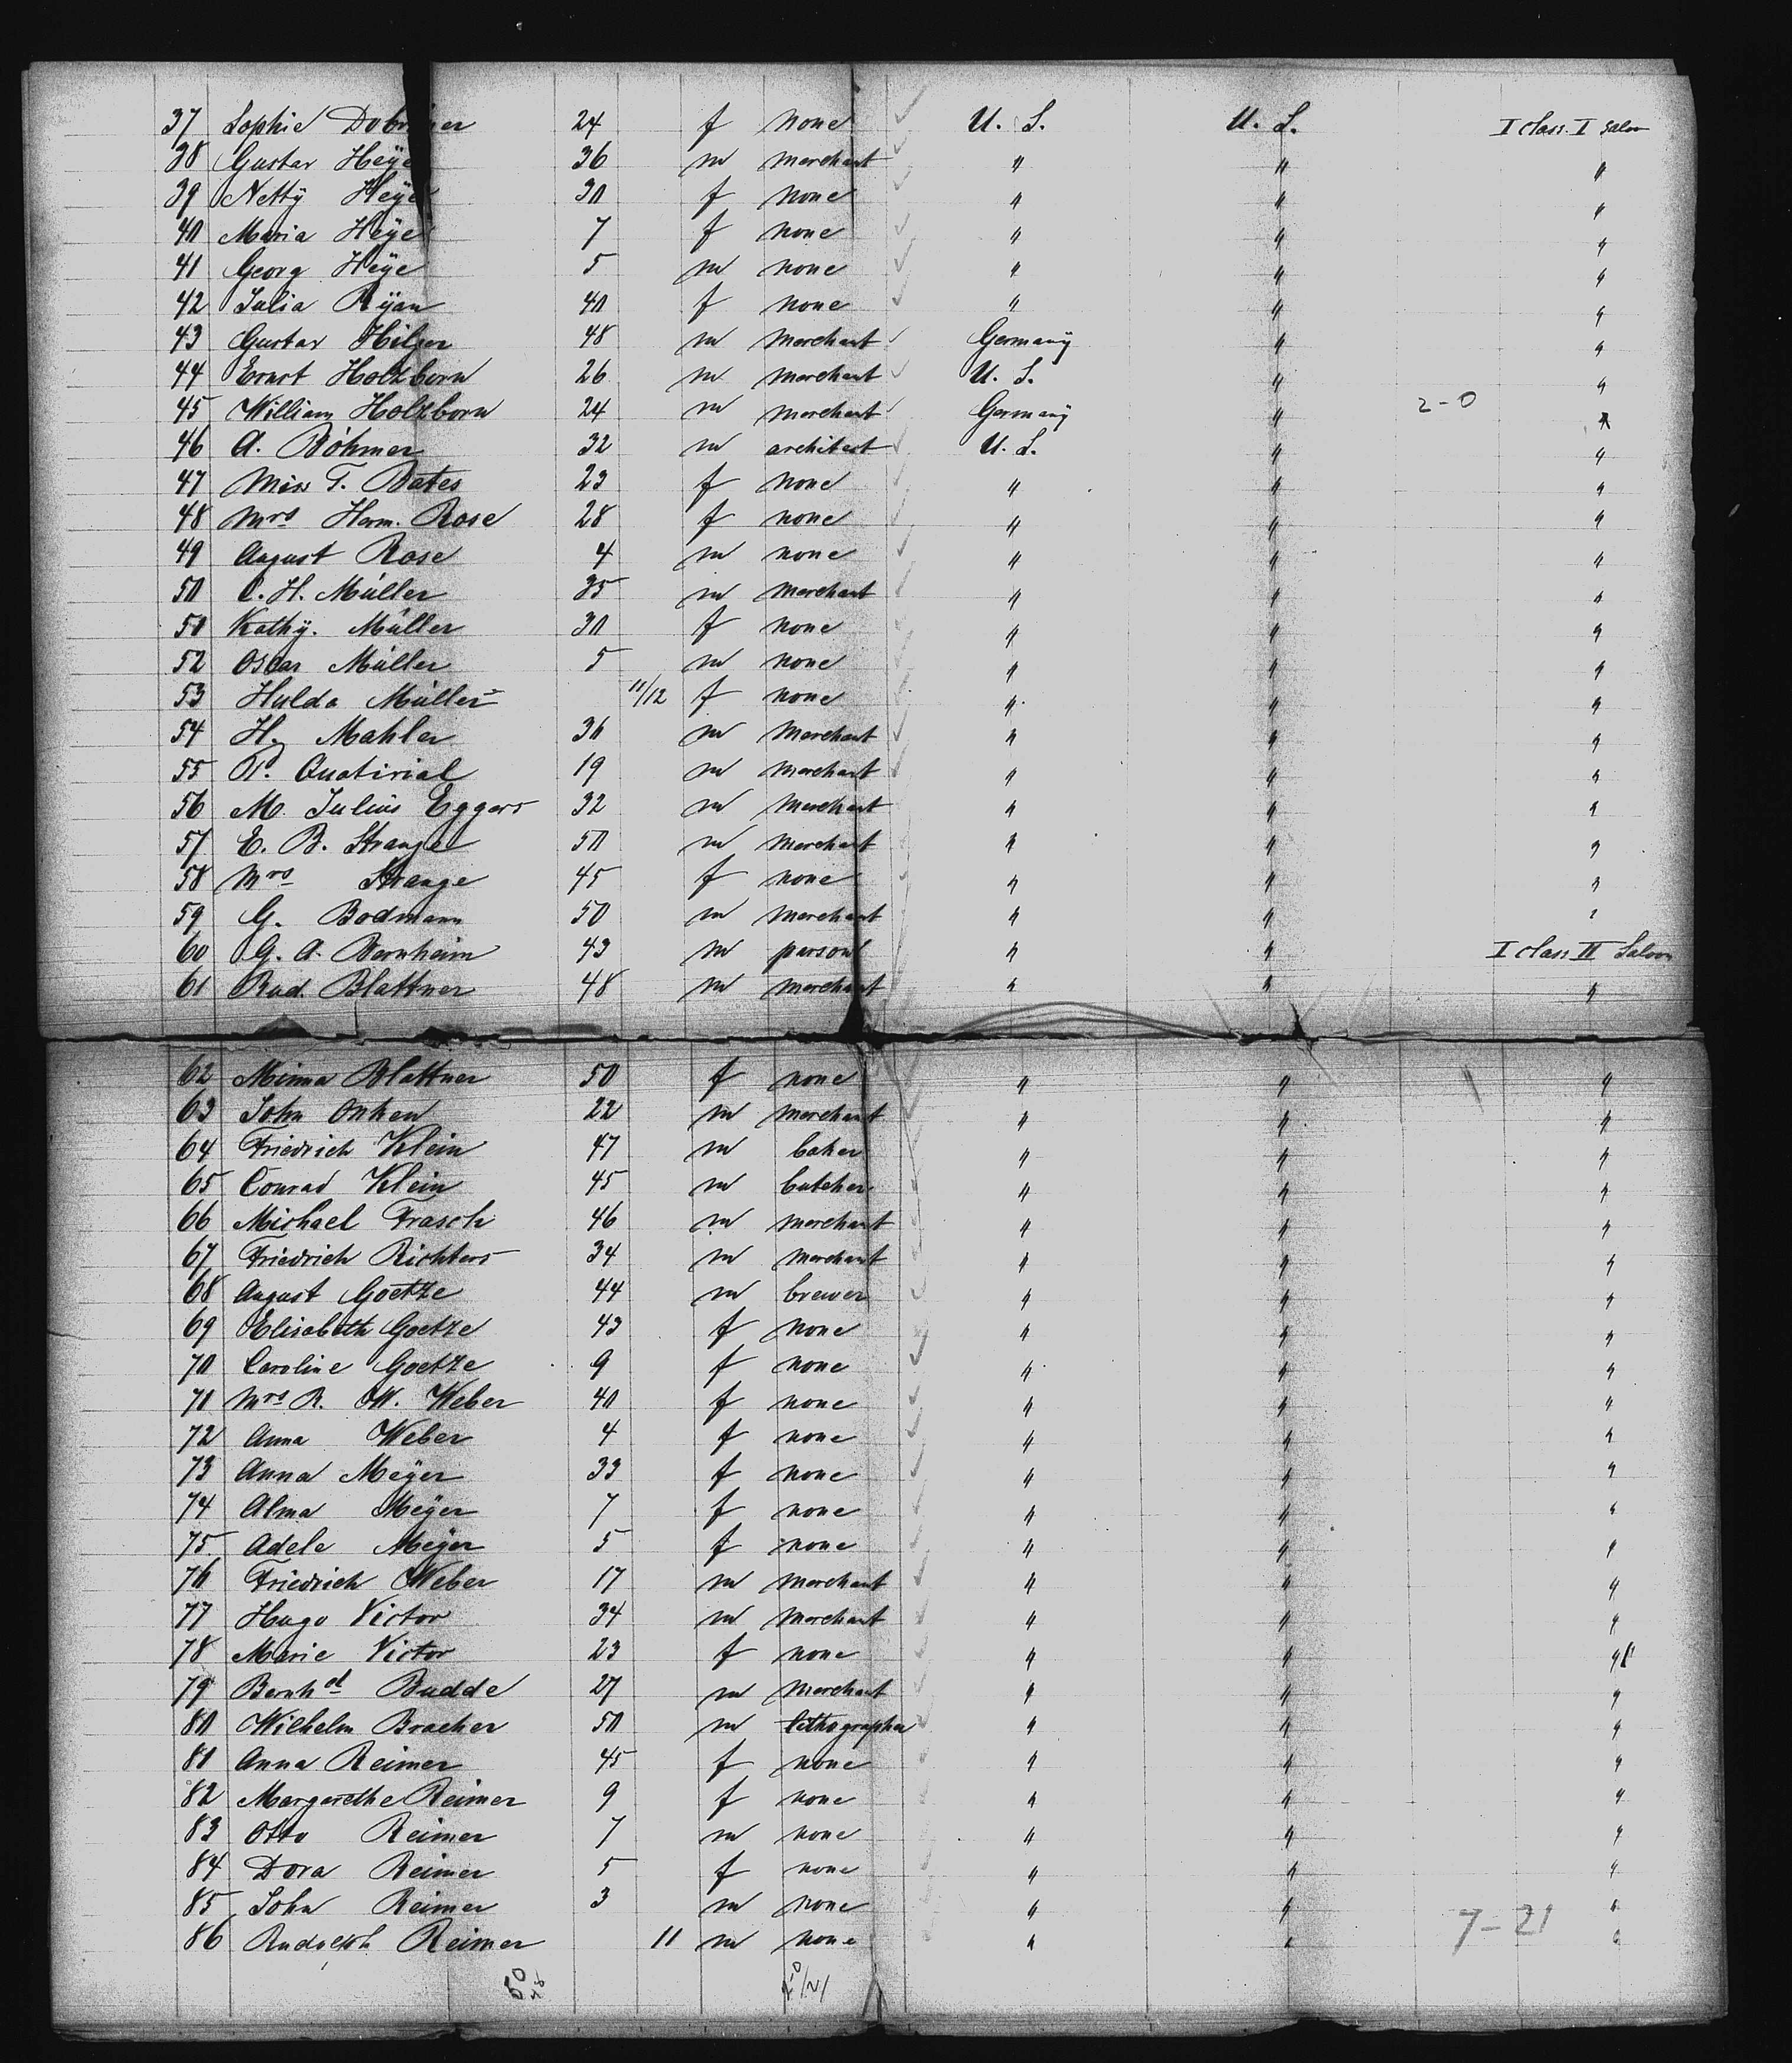 37 Sophie 24 f none U. S. U. S. I class I Saloon
38 Gustav Heye 36 m merchant " " "
39 Netty Heye 30 f none " " "
40 Maria Heye 7 f none " " "
41 Georg Heye 5 m none " " "
42 Julia Ryan 40 f none " " "
43 Gustav Hilger 48 m merchant Germany " "
44 Ernst Holzborn 26 m merchant U. S. " "
45 William Holzborn 24 m merchant Germany " 2-0 "
46 A. Böhmer 32 m architect U. S. " "
47 Miss T. Bates 23 f none " " "
48 Mrs Herm. Rose 28 f none " " "
49 August Rose 4 m none " " "
50 C. H. Müller 35 m merchant " " "
51 Kathy. Müller 30 f none " " "
52 Oscar Müller 5 m none " " "
53 Hulda Müller 11/12 f none " " "
54 H. Mahler 36 m merchant " " "
55 P. 19 m merchant " " "
56 M. Julius Eggers 32 m merchant " " "
57 E. B. Strange 50 m merchant " " "
58 Mrs Strange 45 f none " " "
59 G. Bodmann 50 m merchant " " "
60 G. A. Bernheim 43 m parson " " I class II Saloon
61 Rud. Blattner 48 m merchant " " "
62 Minna Blattner 50 f none " " "
63 John Onken 22 m merchant " " "
64 Friedrich Klein 47 m baker " " "
65 Conrad Klein 45 m butcher " " "
66 Michael Frasch 46 m merchant " " "
67 Friedrich Richters 34 m merchant " " "
68 August Goetze 44 m brewer " " "
69 Elisabeth Goetze 43 f none " " "
70 Caroline Goetze 9 f none " " "
71 Mrs R. W. Weber 40 f none " " "
72 Anna Weber 4 f none " " "
73 Anna Meyer 33 f none " " "
74 Alma Meyer 7 f none " " "
75 Adele Meyer 5 f none " " "
76 Friedrich Weber 17 m merchant " " "
77 Hugo Victor 34 m merchant " " "
78 Marie Victor 23 f none " " "
79 Bernhd Budde 27 m merchant " " "
80 Wilhelm Bracker 50 m lithographer " " "
81 Anna Reimer 45 f none " " "
82 Margarethe Reimer 9 f none " " "
83 Otto Reimer 7 m none " " "
84 Dora Reimer 5 f none " " "
85 John Reimer 3 m none " " "
86 Rudolph Reimer 11 m none " " 7-21 "
50